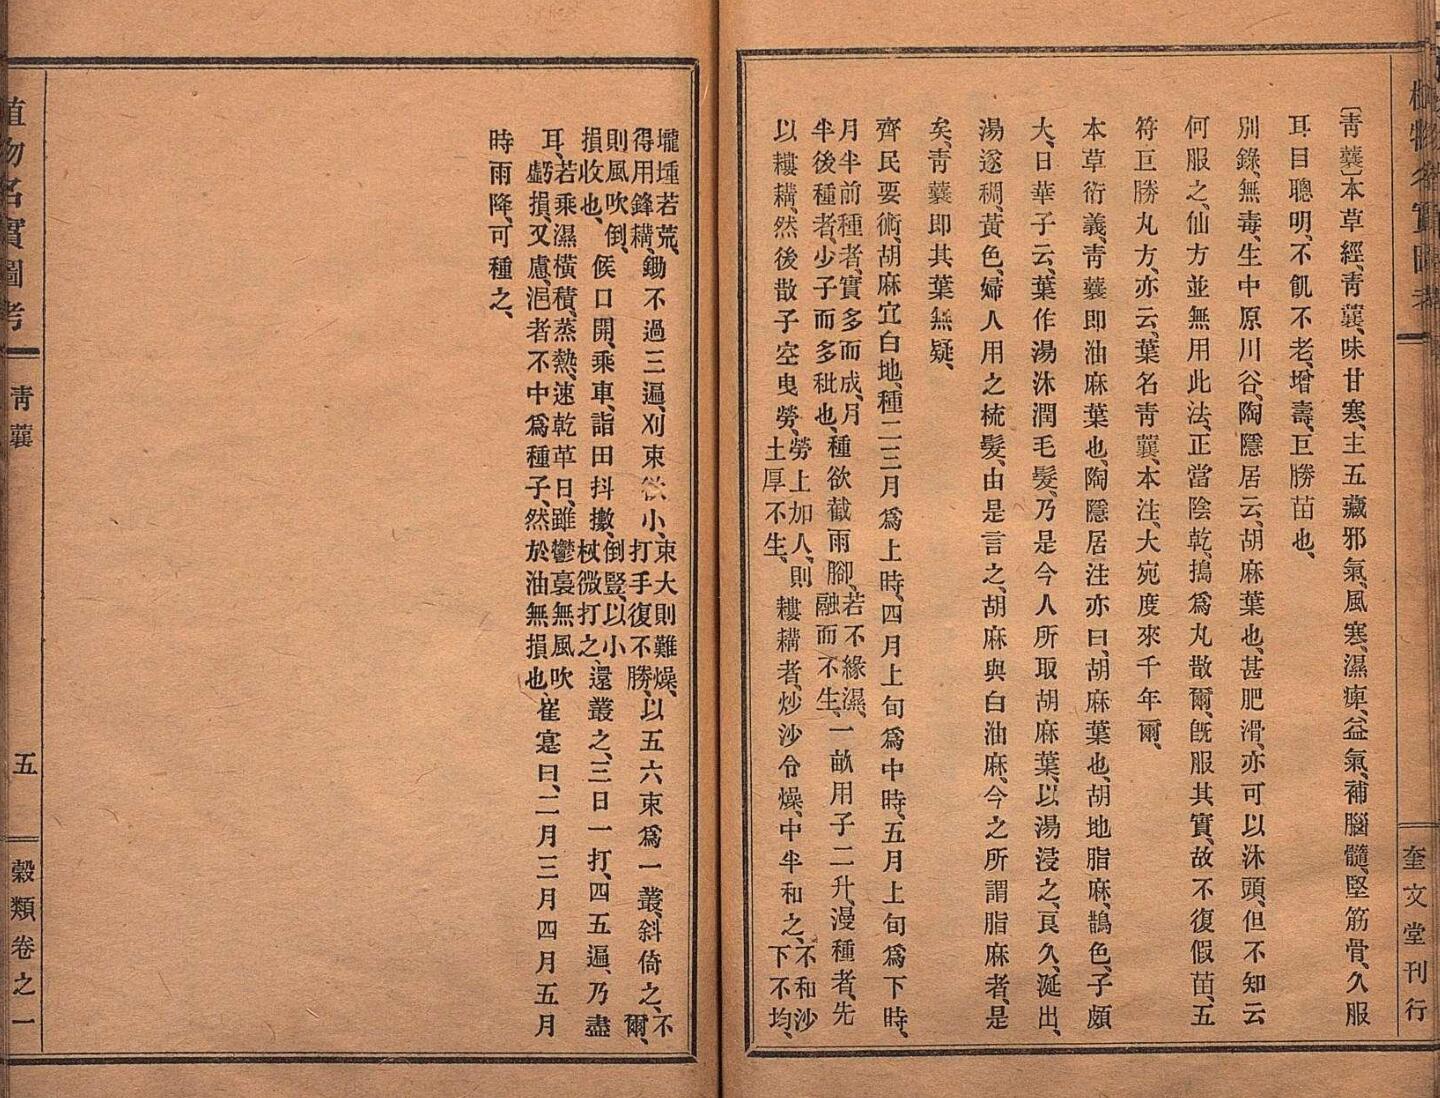 植物名實圖考
奎文堂刊行
〔靑蘘〕本草經、靑蘘、味甘寒、主五藏邪氣、風寒、濕痺、益氣、補腦髓、堅筋骨、久服
耳目聰明、不飢不老、增壽、巨勝苗也、
別錄、無毒、生中原川谷、陶隱居云、胡麻葉也、甚肥滑、亦可以沐頭、但不知云
何服之、仙方並無用此法、正當陰乾、搗爲丸散爾、旣服其實、故不復假苗、五
符巨勝丸方、亦云、葉名靑蘘、本注、大宛度來千年爾、
本草衍義、靑蘘即油麻葉也、陶隱居注亦曰、胡麻葉也、胡地脂麻、鵲色、子頗
大、日華子云、葉作湯沐潤毛髮、乃是今人所取胡麻葉、以湯浸之、良久、涎出、
湯遂稠、黃色、婦人用之梳髮、由是言之、胡麻與白油麻、今之所謂脂麻者、是
矣、靑蘘即其葉無疑、
齊民要術、胡麻宜白地、種二三月爲上時、四月上旬爲中時、五月上旬爲下時、
月半前種者、實多而成、月
半後種者、少子而多秕也、
種欲截雨腳、
若不緣濕、
融而不生、
一畝用子二升、漫種者、先
以耬耩、然後散子空曳勞、
勞上加人、則
土厚不生、
耬耩者、炒沙令燥、中半和之、
不和沙
下不均、
壠埵若荒、
得用鋒耩、
鋤不過三遍、刈束欲小、
束大則難燥、
打手復不勝、
以五六束爲一叢、斜倚之、
不爾、
則風吹倒、
損收也、
候口開、乘車、詣田抖擻、
倒豎、以小
杖微打之、
還叢之、三日一打、四五遍、乃盡
耳、
若乘濕橫積、蒸熱、速乾、草曰、雖鬱裛無風吹
虧損、又慮、浥者不中爲種子、然於油無損也、
崔寔曰、二月三月四月五月
時雨降、可種之、
植物名實圖考
靑蘘
五
穀類卷之一